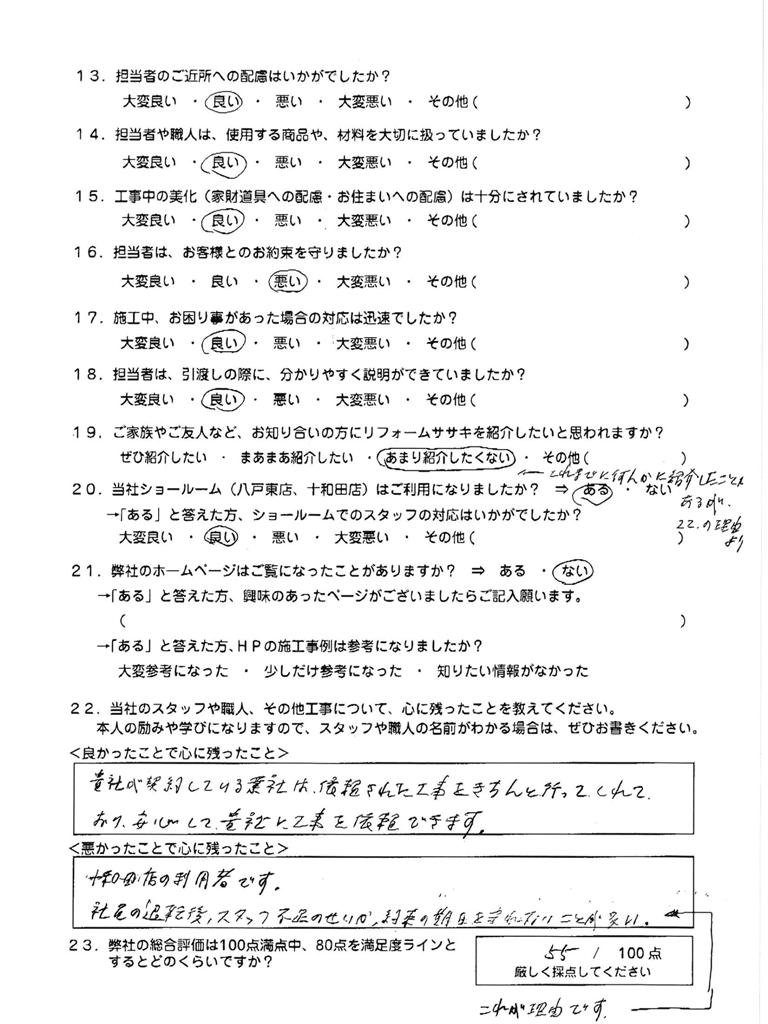 13．担当者のご近所への配慮はいかがでしたか？
大変良い ・ 良い ・ 悪い ・ 大変悪い ・ その他（ ）
14．担当者や職人は、使用する商品や、材料を大切に扱っていましたか？
大変良い ・ 良い ・ 悪い ・ 大変悪い ・ その他（ ）
15．工事中の美化（家財道具への配慮・お住まいへの配慮）は十分にされていましたか？
大変良い ・ 良い ・ 悪い ・ 大変悪い ・ その他（ ）
16．担当者は、お客様とのお約束を守りましたか？
大変良い ・ 良い ・ 悪い ・ 大変悪い ・ その他（ ）
17．施工中、お困り事があった場合の対応は迅速でしたか？
大変良い ・ 良い ・ 悪い ・ 大変悪い ・ その他（ ）
18．担当者は、引渡しの際に、分かりやすく説明ができていましたか？
大変良い ・ 良い ・ 悪い ・ 大変悪い ・ その他（ ）
19．ご家族やご友人など、お知り合いの方にリフォームササキを紹介したいと思われますか？
ぜひ紹介したい ・ まあまあ紹介したい ・ あまり紹介したくない ・ その他（ ）
← これまでに何人かに紹介したことは
20．当社ショールーム（八戸東店、十和田店）はご利用になりましたか？ ⇒ ある ・ ない
あるが、
→「ある」と答えた方、ショールームでのスタッフの対応はいかがでしたか？
22.の理由
大変良い ・ 良い ・ 悪い ・ 大変悪い ・ その他（ ）
より
21．弊社のホームページはご覧になったことがありますか？ ⇒ ある ・ ない
→「ある」と答えた方、興味のあったページがございましたらご記入願います。
（ ）
→「ある」と答えた方、ＨＰの施工事例は参考になりましたか？
大変参考になった ・ 少しだけ参考になった ・ 知りたい情報がなかった
22．当社のスタッフや職人、その他工事について、心に残ったことを教えてください。
本人の励みや学びになりますので、スタッフや職人の名前がわかる場合は、ぜひお書きください。
<良かったことで心に残ったこと>
貴社が契約している業社は、依頼された工事をきちんと行ってくれて
おり、安心して、貴社に工事を依頼できます。
<悪かったことで心に残ったこと>
十和田店の利用者です。
社屋の退転後、スタッフ不足のせいか、約束の期日を守れないことが多い。
23．弊社の総合評価は100点満点中、80点を満足度ラインと
するとどのくらいですか？
55 / 100点
厳しく採点してください
これが理由です。